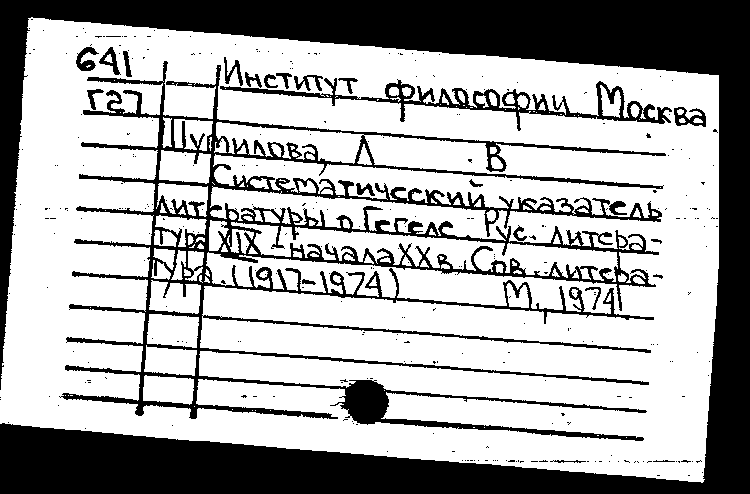 641
Г27
Институт философии Москва.
Шутилова, Л В
Систематический указатель
литературы о Гегеле. Рус. литера-
тура XIX - начала XX в. Сов. литера-
тура. (1917-1974) М., 1974